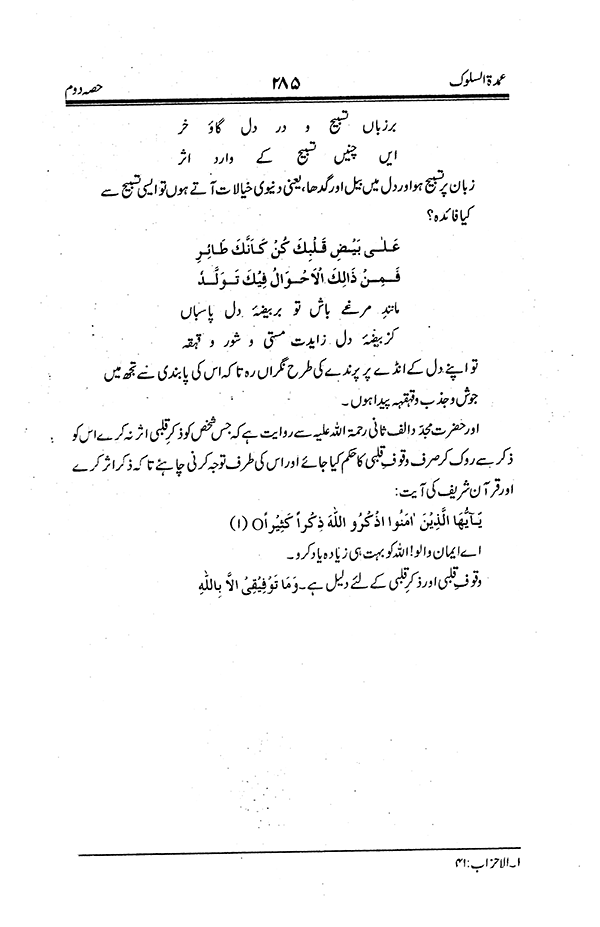 عمدۃ السلوک ۲۸۵ حصہ دوم
برزباں تسبیح و در دل گاؤ خر
ایں چنیں تسبیح کے وارد اثر
زبان پر تسبیح ہو اور دل میں بیل اور گدھا، یعنی دنیوی خیالات آتے ہوں تو ایسی تسبیح سے
کیا فائدہ؟
عَلٰی بَیْضِ قَلْبِكَ كُنْ كَاَنَّكَ طَائِرِ
فَمِنْ ذَالِكَ الْاَحْوَالُ فِيْكَ تَوَلَّدُ
مانندِ مرغے باش تو بربیضۂ دل پاسباں
کز بیضۂ دل زایدت مستی و شور و قہقہ
تو اپنے دل کے انڈے پر پرندے کی طرح نگراں رہ تاکہ اس کی پابندی سے تجھ میں
جوش و جذب و قہقہہ پیدا ہوں۔
اور حضرت مجدّد الف ثانی رحمۃ اللہ علیہ سے روایت ہے کہ جس شخص کو ذکرِ قلبی اثر نہ کرے اس کو
ذکر سے روک کر صرف وقوفِ قلبی کا حکم کیا جائے اور اس کی طرف توجہ کرنی چاہئے تاکہ ذکر اثر کرے
اور قرآن شریف کی آیت:
یَآیُّهَا الَّذِیْنَ اٰمَنُوا اذْكُرُو اللّٰهَ ذِكْراً كَثِیْراًO (۱)
اے ایمان والو! اللہ کو بہت ہی زیادہ یاد کرو۔
وقوفِ قلبی اور ذکرِ قلبی کے لئے دلیل ہے۔ وَمَا تَوْفِیْقِیْ اِلَّا بِاللّٰهِ
۱۔ الاحزاب: ۴۱